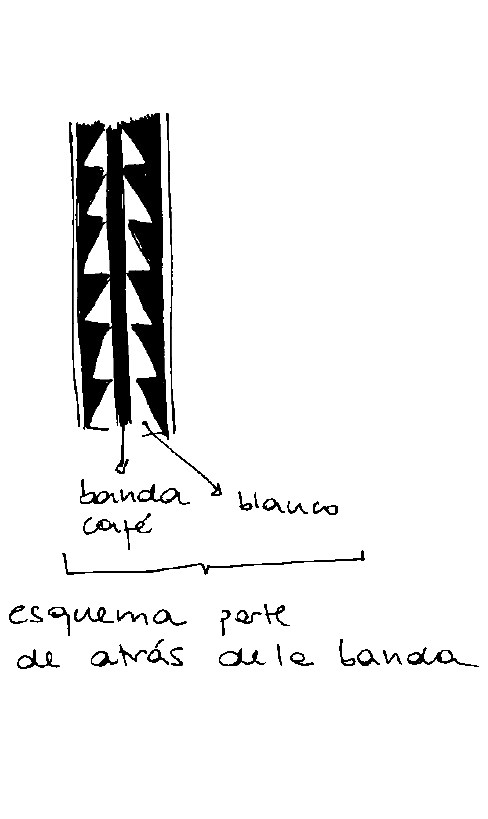 banda
café
blanco
esquema parte
de atrás de la banda